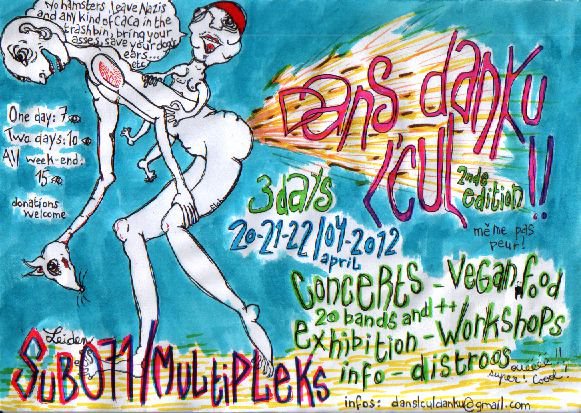 No hamsters, leave Nazis
and any kind of CaCa in the
trashbin, bring your
asses, save your dog's
ears...
etc
One day: 7
Two days: 10
All week-end:
15
donations
welcome
Dans danku
l'cul !!
2nde
edition
même pas
peur!
3 days
20-21-22/04-2012
april
Concerts - Vegan food
20 bands and ++
exhibition - Workshops
info - distroos
super! Cool!
Leiden
SUB071/Multipleks
infos: danslculdanku@gmail.com